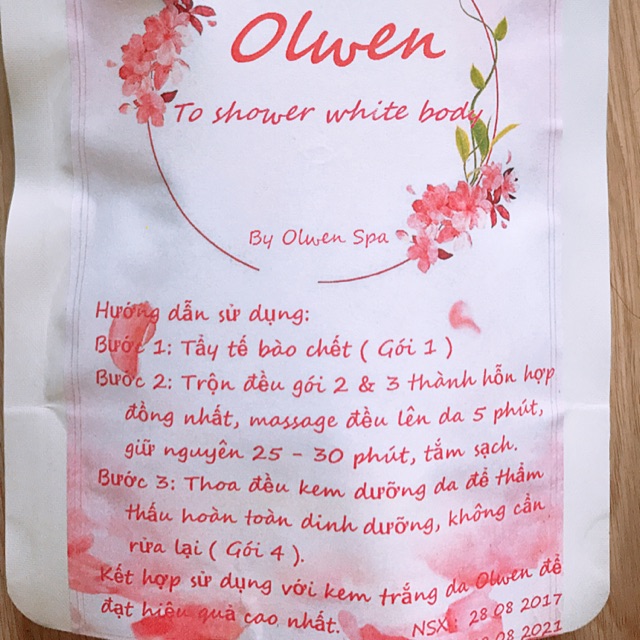 Olwen
To shower white body
By Olwen Spa
Hướng dẫn sử dụng:
Bước 1: Tẩy tế bào chết ( Gói 1 )
Bước 2: Trộn đều gói 2 & 3 thành hỗn hợp
đồng nhất, massage đều lên da 5 phút,
giữ nguyên 25 - 30 phút, tắm sạch.
Bước 3: Thoa đều kem dưỡng da để thẩm
thấu hoàn toàn dinh dưỡng, không cần
rửa lại ( Gói 4 ).
Kết hợp sử dụng với kem trắng da Olwen để
đạt hiệu quả cao nhất.
NSX: 28 08 2017
08 2021